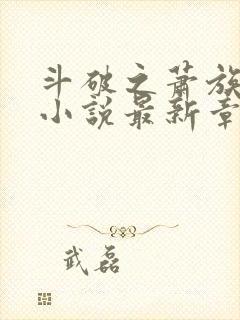 斗破之萧族
小説最新章
武磊